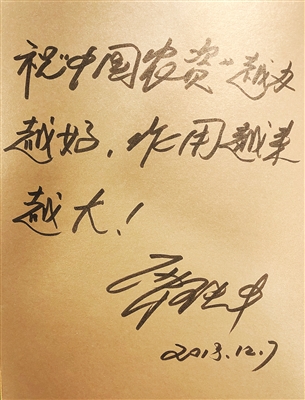 祝“中国农资”越办
越好，作用越来
越大！
2013.12.7